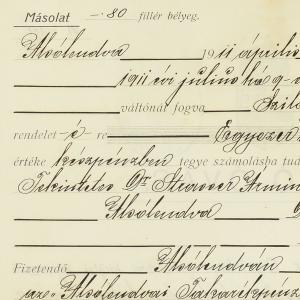 Másolat -·80 fillér bélyeg.
Alsólendva 1911 április
1911 évi julius hó 9-
váltónát fogva Szil
rendelet -é- re Egyezer
értéke készpénzben tegye számolásba tud
Tekintetes Dr Strasser Ármin
Alsólendva
Fizetendő Alsólendván
az Alsólendvai Takarékpénz